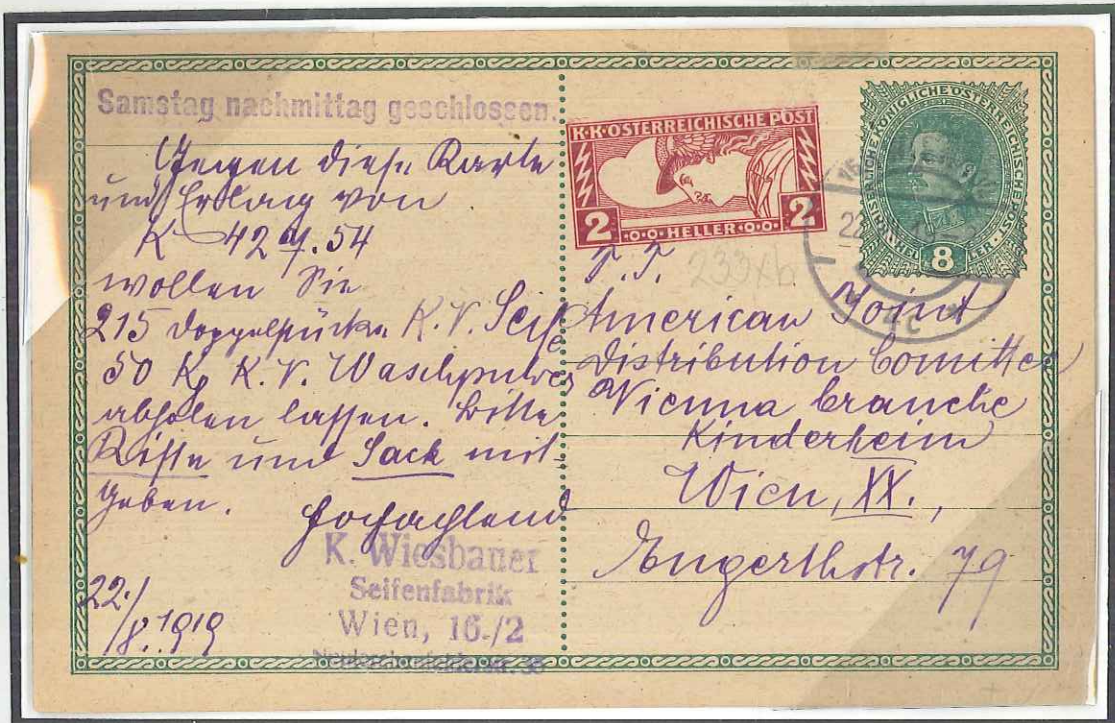 Samstag nachmittag geschlossen.
Gegen diese Karte
und Erlag von
K
wollen Sie
215 Doppelstücke K.V. Seife
50 Kg K.V. Waschpulver
abholen lassen. Bitte
Kiste und Sack mit-
geben.
Hochachtend
K. Wiesbauer
Seifenfabrik
Wien, 16./2
22./8.1919
K·K·ÖSTERREICHISCHE POST
2 HELLER 2
KAISERLICHE KÖNIGLICHE ÖSTERREICHISCHE POST
8
22
4c
233xb
P.T.
American Joint
Distribution Comittee
Vienna branche
Kinderheim
Wien, XX.,
Engerthstr. 79